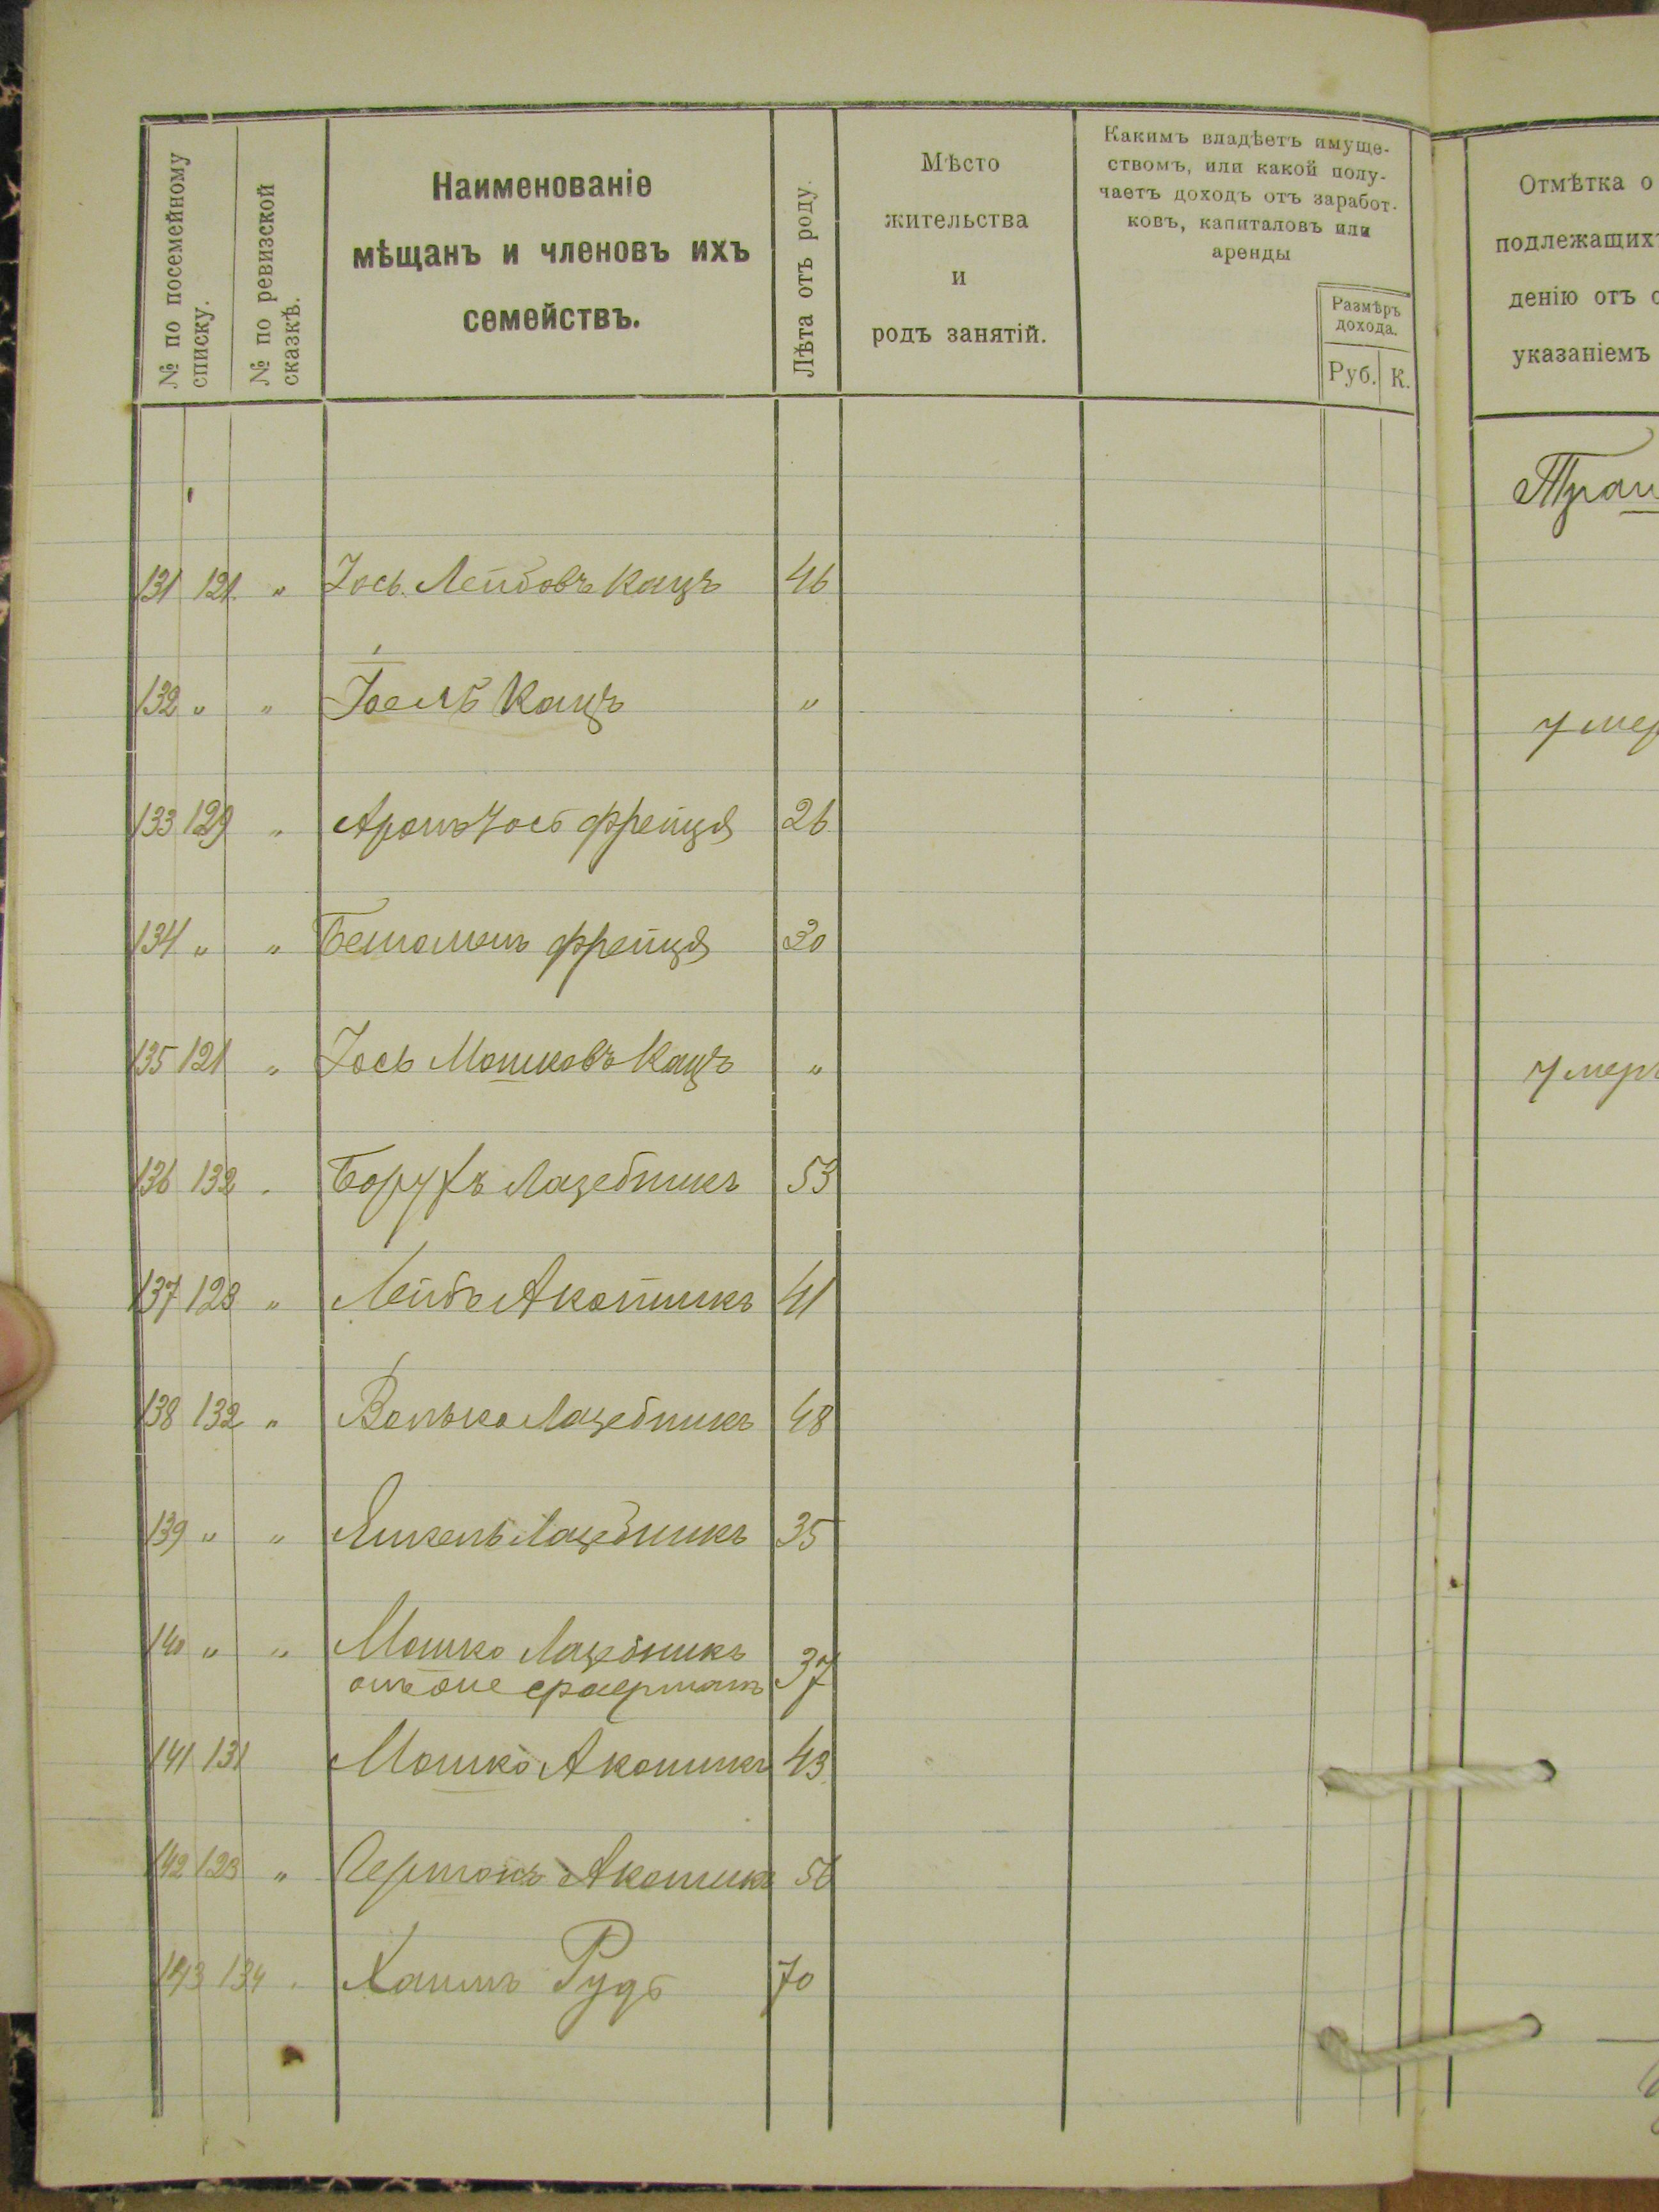 № по посемейному
списку.
№ по ревизской
сказкѣ.
Наименованіе
мѣщанъ и членовъ ихъ
семействъ.
Лѣта отъ роду.
Мѣсто
жительства
и
родъ занятій.
Какимъ владѣетъ имуще-
ствомъ, или какой полу-
чаетъ доходъ отъ заработ-
ковъ, капиталовъ или
аренды
Размѣръ
дохода.
Руб. К.
Отмѣтка о
подлежащихъ
денію отъ о
указаніемъ
131 121 " Іось Лейбовъ Кацъ 46
132 " " Іосль Кацъ "
умер
133 129 " Аронъ Іось Фрейнд 26
134 " " Фрейнд 20
135 121 " Іось Мошковъ Кацъ "
умеръ
136 132 " Борухъ Лазебникъ 53
137 128 " Лейбъ Акопникъ 41
138 132 " Волько Лазебникъ 48
139 " " Янкель Лазебникъ 35
140 " " Мошко Лазебникъ
онъ же Фаерманъ 37
141 131 Мошко Акопникъ 43
142 128 " Акопникъ 56
143 134 " Хаимъ Рудь 70